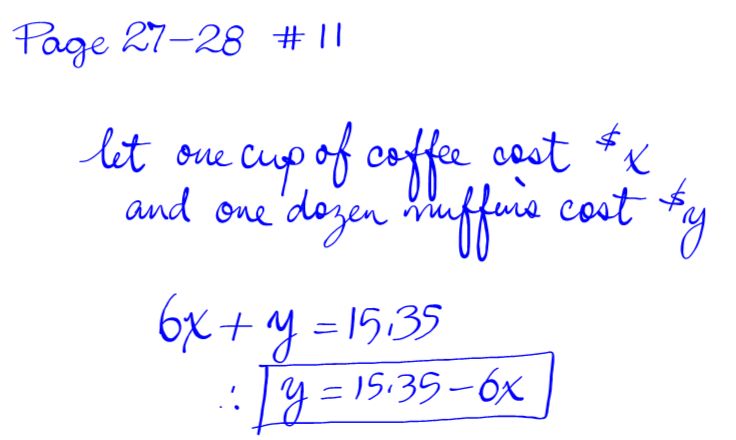 Page 27-28 # 11
let one cup of coffee cost $x
and one dozen muffins cost $y
6x + y = 15.35
∴ y = 15.35 - 6x